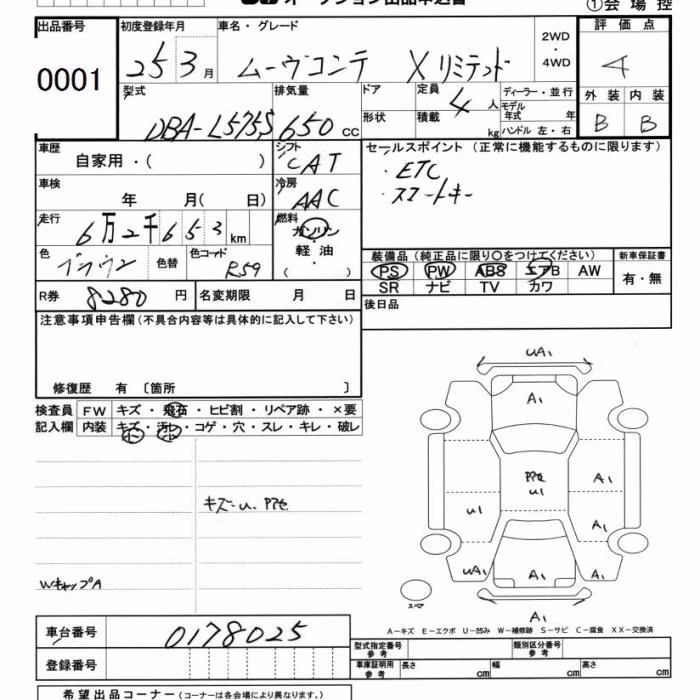 オークション出品申込書
①会場控
出品番号 0001
初度登録年月 25 3月
車名・グレード ムーヴコンテ Xリミテッド
2WD・4WD
評価点 4
外装 内装
B B
型式 DBA-L575S
排気量 650 cc
ドア形状
定員 4人
積載 kg
ディーラー・並行
モデル年式 年
ハンドル 左・右
車歴 自家用・( )
シフト CAT
セールスポイント (正常に機能するものに限ります)
・ETC
・スマートキー
車検 年 月( 日)
冷房 AAC
走行 6万2千653 km
燃料 ガソリン・軽油・( )
色 ブラウン
色替
色コード R59
装備品 (純正品に限り○をつけてください)
新車保証書
PS PW AB8 エアB AW
有・無
SR ナビ TV カワ
R券 8280 円
名変期限 月 日
後日品
注意事項申告欄(不具合内容等は具体的に記入して下さい)
修復歴 有 〔箇所 〕
検査員 FW キズ・飛石・ヒビ割・リペア跡・×要
記入欄 内装 キズ・汚レ・コゲ・穴・スレ・キレ・破レ
キズ・u.
WキャップA
UA1
A1
U1
U1
A1
A1
UA1
A1
A1
A1
スペア
A-キズ E-エクボ U-凹み W-補修跡 S-サビ C-腐食 XX-交換済
車台番号 0178025
登録番号
型式指定番号 参考
類別区分番号 参考
車庫証明用 参考 長さ cm 幅 cm 高さ cm
希望出品コーナー (コーナーは各会場により異なります。)